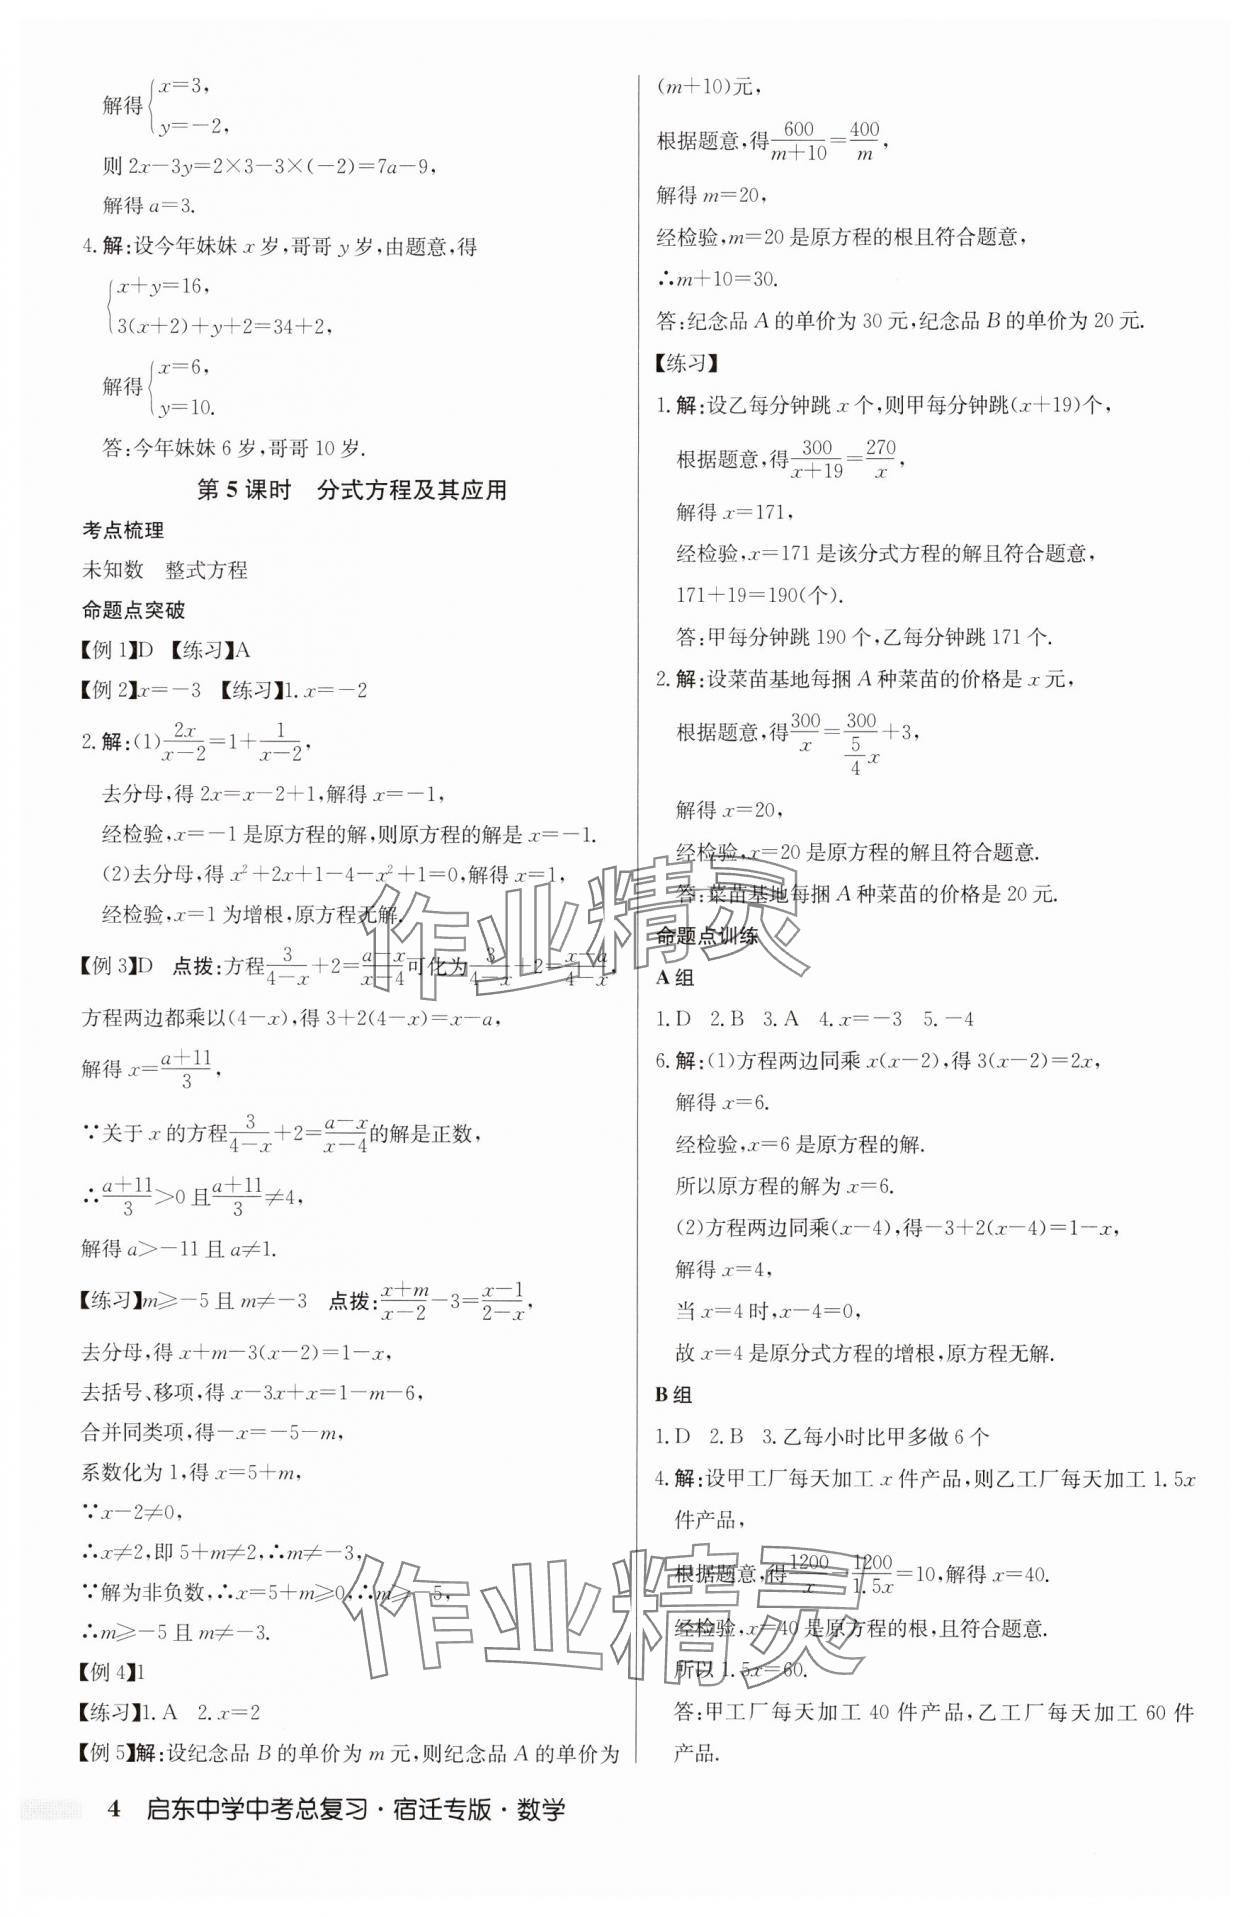 解得{x=3,
y=-2,
则 2x-3y=2×3-3×(-2)=7a-9,
解得 a=3.
4. 解:设今年妹妹 x 岁,哥哥 y 岁,由题意,得
{x+y=16,
3(x+2)+y+2=34+2,
解得{x=6,
y=10.
答:今年妹妹 6 岁,哥哥 10 岁.
第 5 课时 分式方程及其应用
考点梳理
未知数 整式方程
命题点突破
【例 1】D 【练习】A
【例 2】x=-3 【练习】1. x=-2
2. 解:(1) 2x/(x-2)=1+1/(x-2),
去分母,得 2x=x-2+1,解得 x=-1,
经检验,x=-1 是原方程的解,则原方程的解是 x=-1.
(2)去分母,得 x²+2x+1-4-x²+1=0,解得 x=1,
经检验,x=1 为增根,原方程无解.
【例 3】D 点拨:方程 3/(4-x)+2=(a-x)/(x-4) 可化为 3/(4-x)+2=(x-a)/(4-x),
方程两边都乘以(4-x),得 3+2(4-x)=x-a,
解得 x=(a+11)/3,
∵关于 x 的方程 3/(4-x)+2=(a-x)/(x-4) 的解是正数,
∴(a+11)/3>0 且 (a+11)/3≠4,
解得 a>-11 且 a≠1.
【练习】m≥-5 且 m≠-3 点拨:(x+m)/(x-2)-3=(x-1)/(2-x),
去分母,得 x+m-3(x-2)=1-x,
去括号、移项,得 x-3x+x=1-m-6,
合并同类项,得-x=-5-m,
系数化为 1,得 x=5+m,
∵x-2≠0,
∴x≠2,即 5+m≠2,∴m≠-3,
∵解为非负数,∴x=5+m≥0,∴m≥-5,
∴m≥-5 且 m≠-3.
【例 4】1
【练习】1. A 2. x=2
【例 5】解:设纪念品 B 的单价为 m 元,则纪念品 A 的单价为
(m+10)元,
根据题意,得 600/(m+10)=400/m,
解得 m=20,
经检验,m=20 是原方程的根且符合题意,
∴m+10=30.
答:纪念品 A 的单价为 30 元,纪念品 B 的单价为 20 元.
【练习】
1. 解:设乙每分钟跳 x 个,则甲每分钟跳(x+19)个,
根据题意,得 300/(x+19)=270/x,
解得 x=171,
经检验,x=171 是该分式方程的解且符合题意,
171+19=190(个).
答:甲每分钟跳 190 个,乙每分钟跳 171 个.
2. 解:设菜苗基地每捆 A 种菜苗的价格是 x 元,
根据题意,得 300/x=300/(5/4 x)+3,
解得 x=20,
经检验,x=20 是原方程的解且符合题意.
答:菜苗基地每捆 A 种菜苗的价格是 20 元.
命题点训练
A 组
1. D 2. B 3. A 4. x=-3 5. -4
6. 解:(1)方程两边同乘 x(x-2),得 3(x-2)=2x,
解得 x=6.
经检验,x=6 是原方程的解.
所以原方程的解为 x=6.
(2)方程两边同乘(x-4),得-3+2(x-4)=1-x,
解得 x=4,
当 x=4 时,x-4=0,
故 x=4 是原分式方程的增根,原方程无解.
B 组
1. D 2. B 3. 乙每小时比甲多做 6 个
4. 解:设甲工厂每天加工 x 件产品,则乙工厂每天加工 1.5x
件产品,
根据题意,得 1200/x-1200/1.5x=10,解得 x=40.
经检验,x=40 是原方程的根,且符合题意.
所以 1.5x=60.
答:甲工厂每天加工 40 件产品,乙工厂每天加工 60 件
产品.
作业精灵
作业精灵
4 启东中学中考总复习·宿迁专版·数学